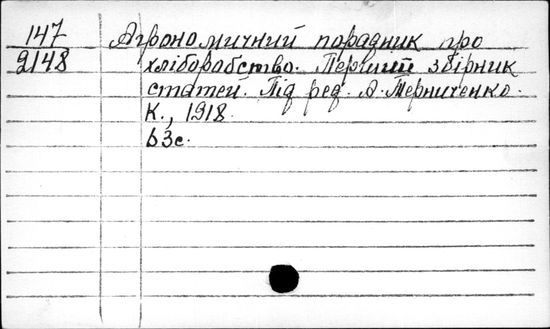 147 Агрономичний порадник про
2148 хліборабство. Перший збірник
статей. Під ред. А. Терниченко.
К., 1918.
63с.